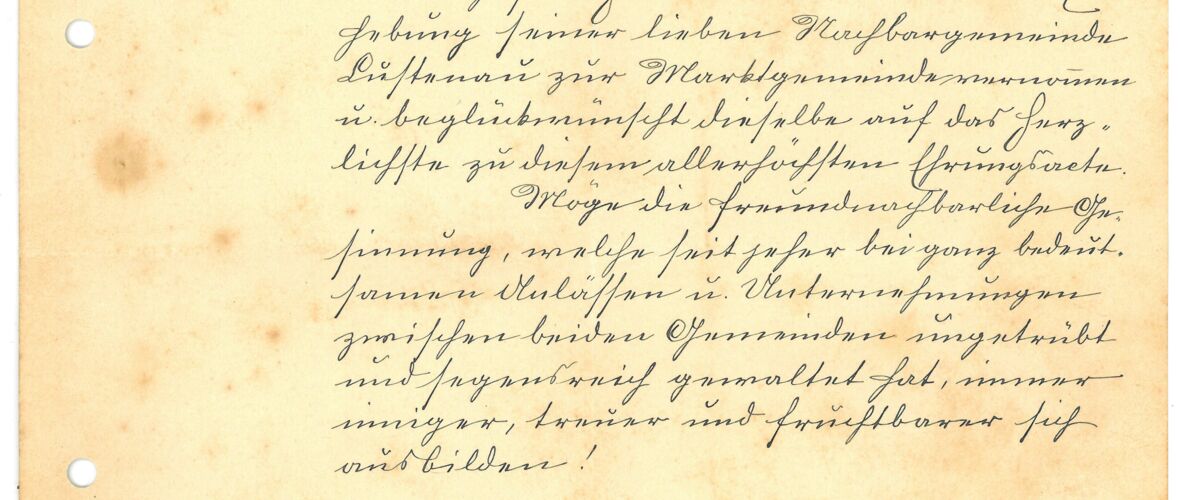 hebung seiner lieben Nachbargemeinde
Lustenau zur Marktgemeinde vernom̅en
u. beglückwünscht dieselbe auf das Herz-
lichste zu diesem allerhöchsten Ehrungsacte.
Möge die freundnachbarliche Ge-
sinnung, welche seit jeher bei ganz bedeut-
samen Anlässen u. Unternehmungen
zwischen beiden Gemeinden ungetrübt
und segensreich gewaltet hat, immer
inniger, treuer und fruchtbarer sich
ausbilden!